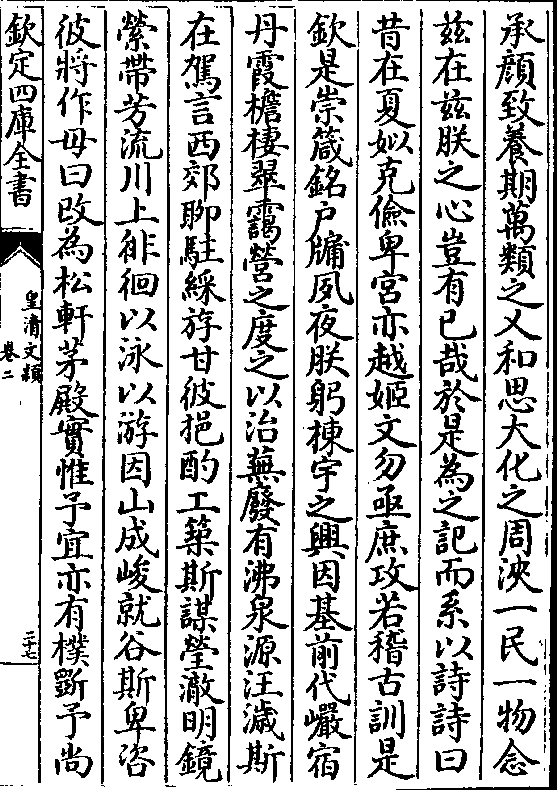 承顔致養期萬類之乂和思大化之周浹一民一物念
兹在兹朕之心豈有已哉於是為之記而系以詩詩曰
昔在夏姒克儉卑宮亦越姬文勿亟庶攻若稽古訓是
欽是崇箴銘户牖夙夜朕躬棟宇之興因基前代巖宿
丹霞檐棲翠靄營之度之以治蕪廢有沸泉源汪濊斯
在駕言西郊聊駐綵斿甘彼挹酌工築斯謀瑩澈明鏡
縈帶芳流川上徘徊以泳以游因山成峻就谷斯卑咨
彼將作毋曰改為松軒茅殿實惟予宜亦有樸斵予尚
欽定四庫全書
皇清文穎
卷二
二十七